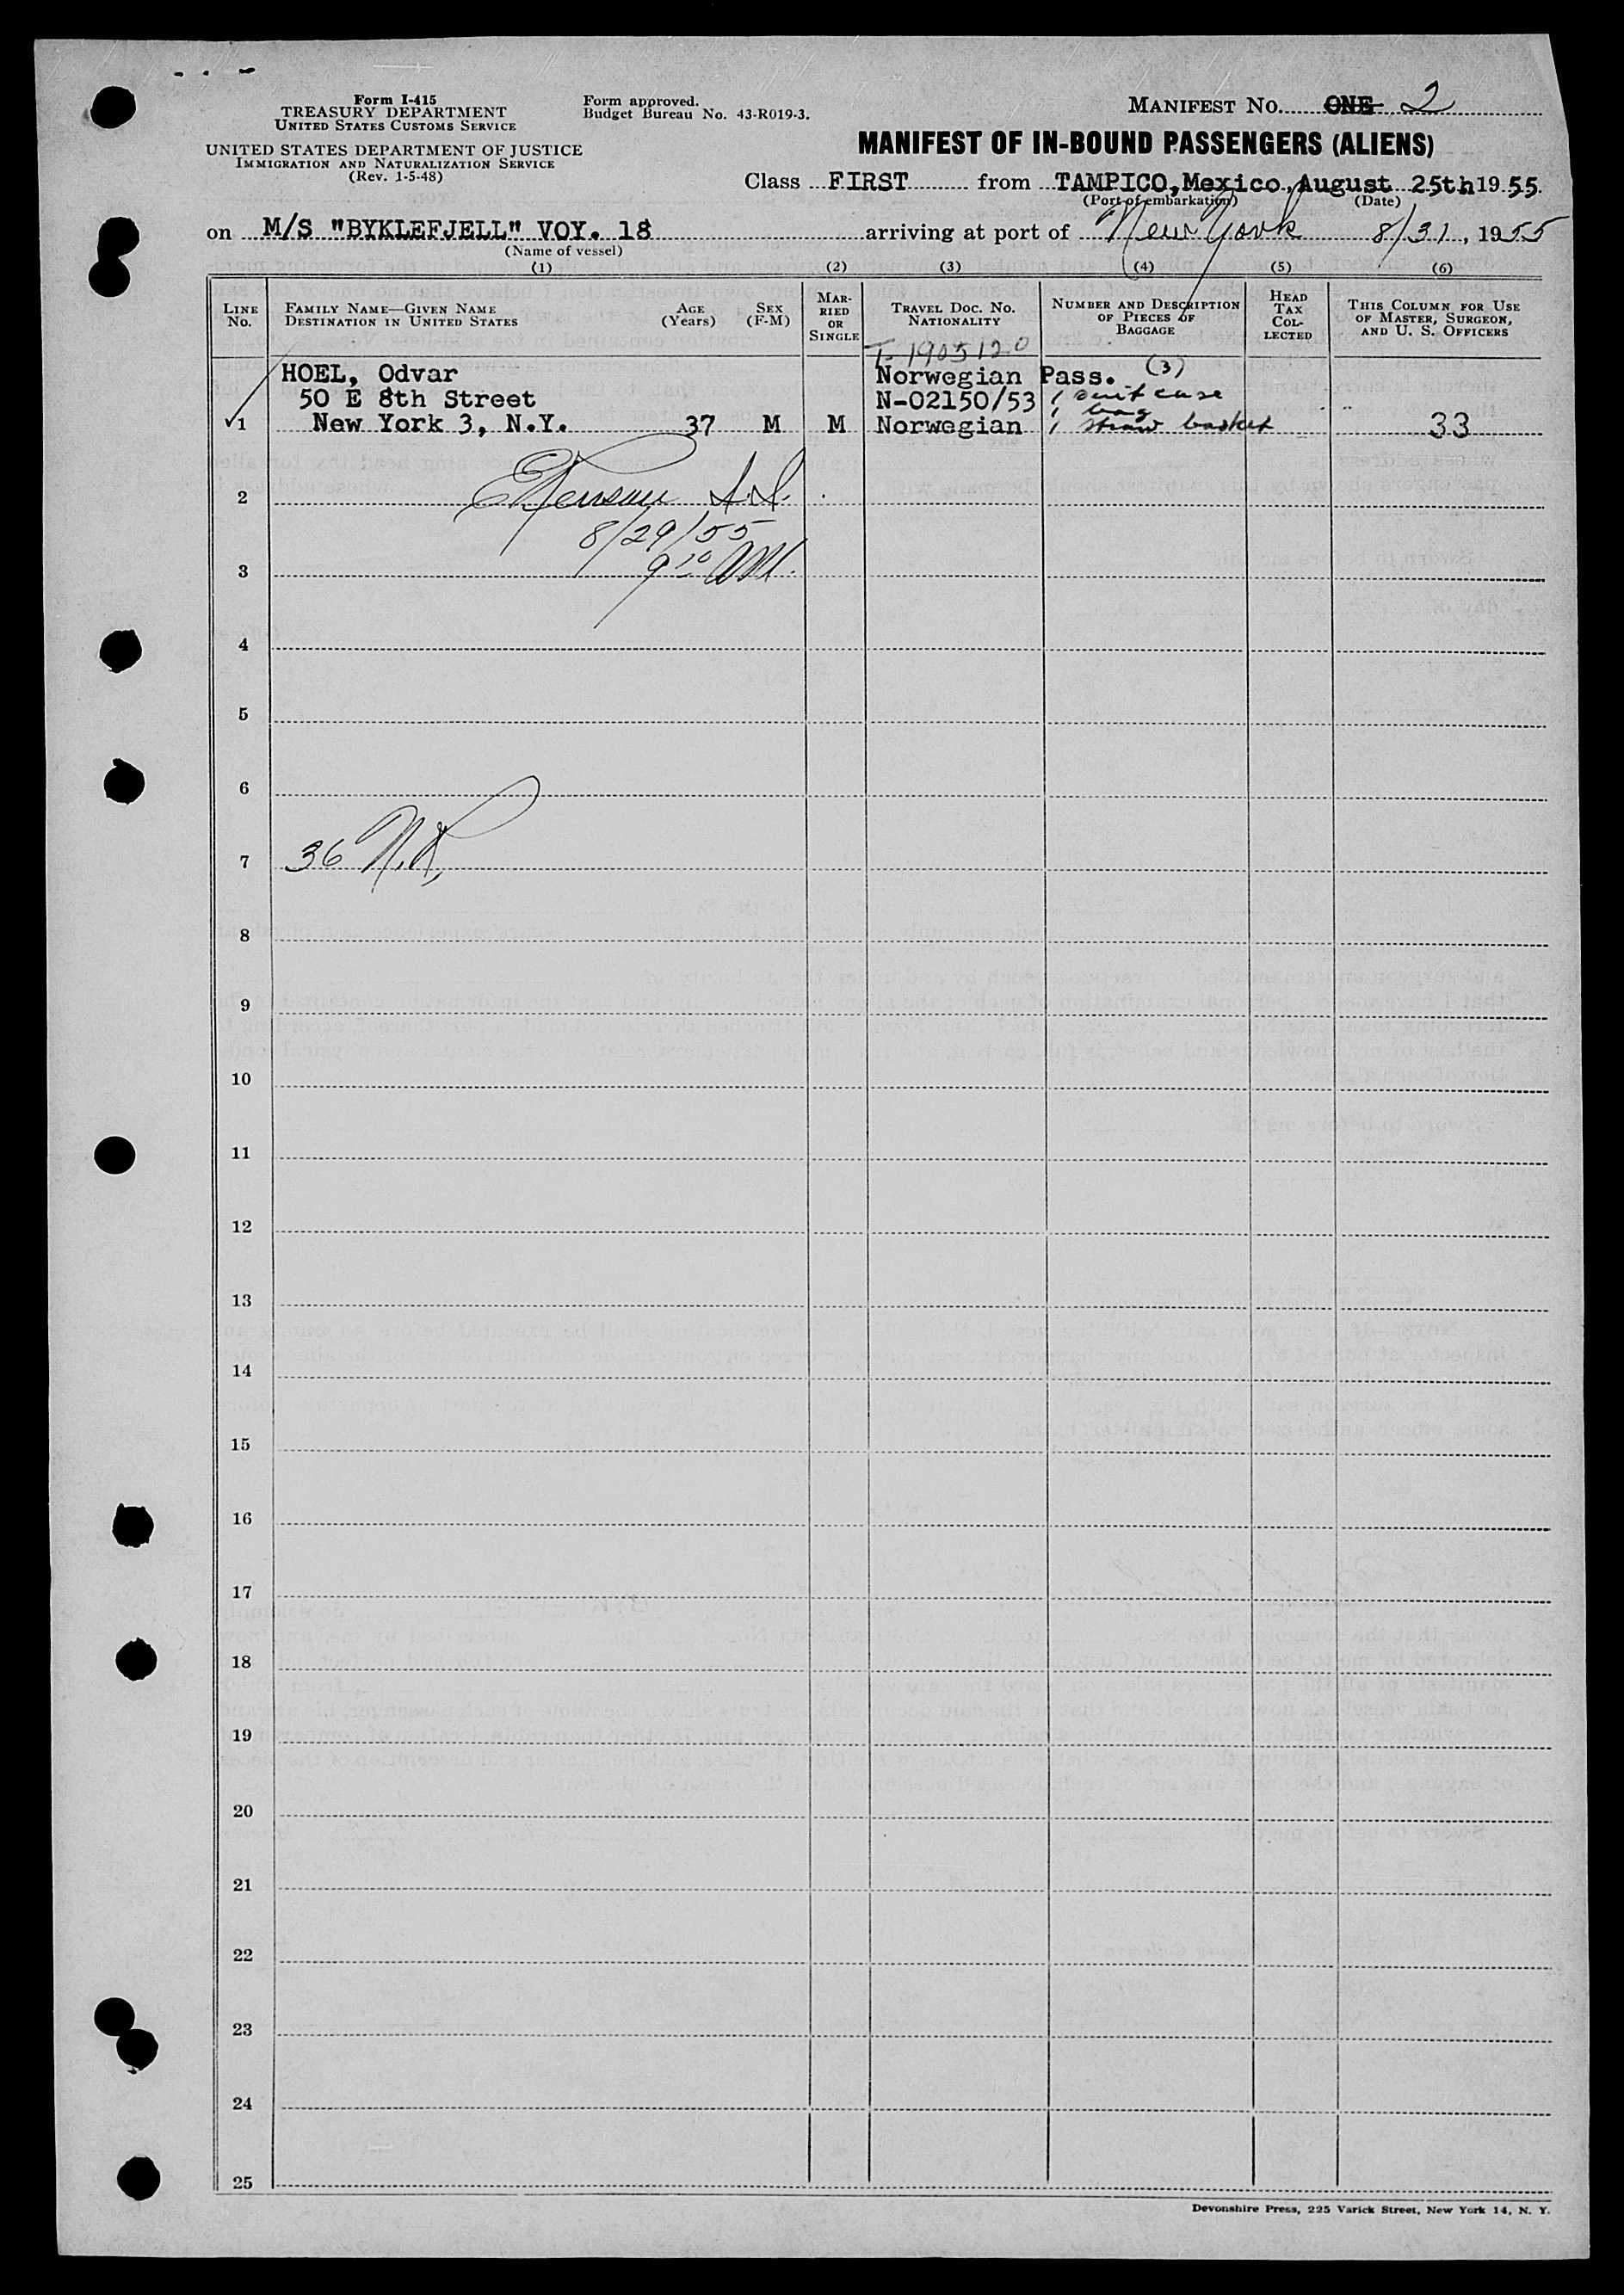 Form I-415
TREASURY DEPARTMENT
UNITED STATES CUSTOMS SERVICE
UNITED STATES DEPARTMENT OF JUSTICE
IMMIGRATION AND NATURALIZATION SERVICE
(Rev. 1-5-48)
Form approved.
Budget Bureau No. 43-R019-3.
MANIFEST NO. ONE 2
MANIFEST OF IN-BOUND PASSENGERS (ALIENS)
Class FIRST from TAMPICO, Mexico, August 25th 1955.
(Port of embarkation) (Date)
on M/S "BYKLEFJELL" VOY. 18 arriving at port of New York 8/31, 1955
(Name of vessel)
(1) (2) (3) (4) (5) (6)
LINE No.
FAMILY NAME—GIVEN NAME
DESTINATION IN UNITED STATES
AGE (Years)
SEX (F-M)
MARRIED OR SINGLE
TRAVEL DOC. NO.
NATIONALITY
NUMBER AND DESCRIPTION
OF PIECES OF
BAGGAGE
HEAD TAX COLLECTED
THIS COLUMN FOR USE
OF MASTER, SURGEON,
AND U. S. OFFICERS
T-1905120
HOEL, Odvar Norwegian Pass. (3)
50 E 8th Street N-02150/53 1 suitcase
1 bag
1 New York 3, N.Y. 37 M M Norwegian 1 straw basket 33
2
8/29/55
3 9 10 AM.
4
5
6
7 36 N.R.
8
9
10
11
12
13
14
15
16
17
18
19
20
21
22
23
24
25
Devonshire Press, 225 Varick Street, New York 14, N. Y.